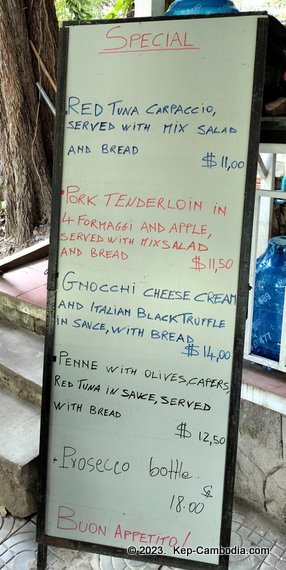 SPECIAL
RED TUNA CARPACCIO,
SERVED WITH MIX SALAD
AND BREAD
$ 11,00
PORK TENDERLOIN IN
4 FORMAGGI AND APPLE,
SERVED WITH MIX SALAD
AND BREAD
$ 11,50
GNOCCHI CHEESE CREAM
AND ITALIAN BLACK TRUFFLE
IN SAUCE, WITH BREAD
$ 14,00
PENNE WITH OLIVES, CAPERS,
RED TUNA IN SAUCE, SERVED
WITH BREAD
$ 12,50
+ Prosecco bottle.
$
18.00
BUON APPETITO!
© 2023. Kep-Cambodia.com